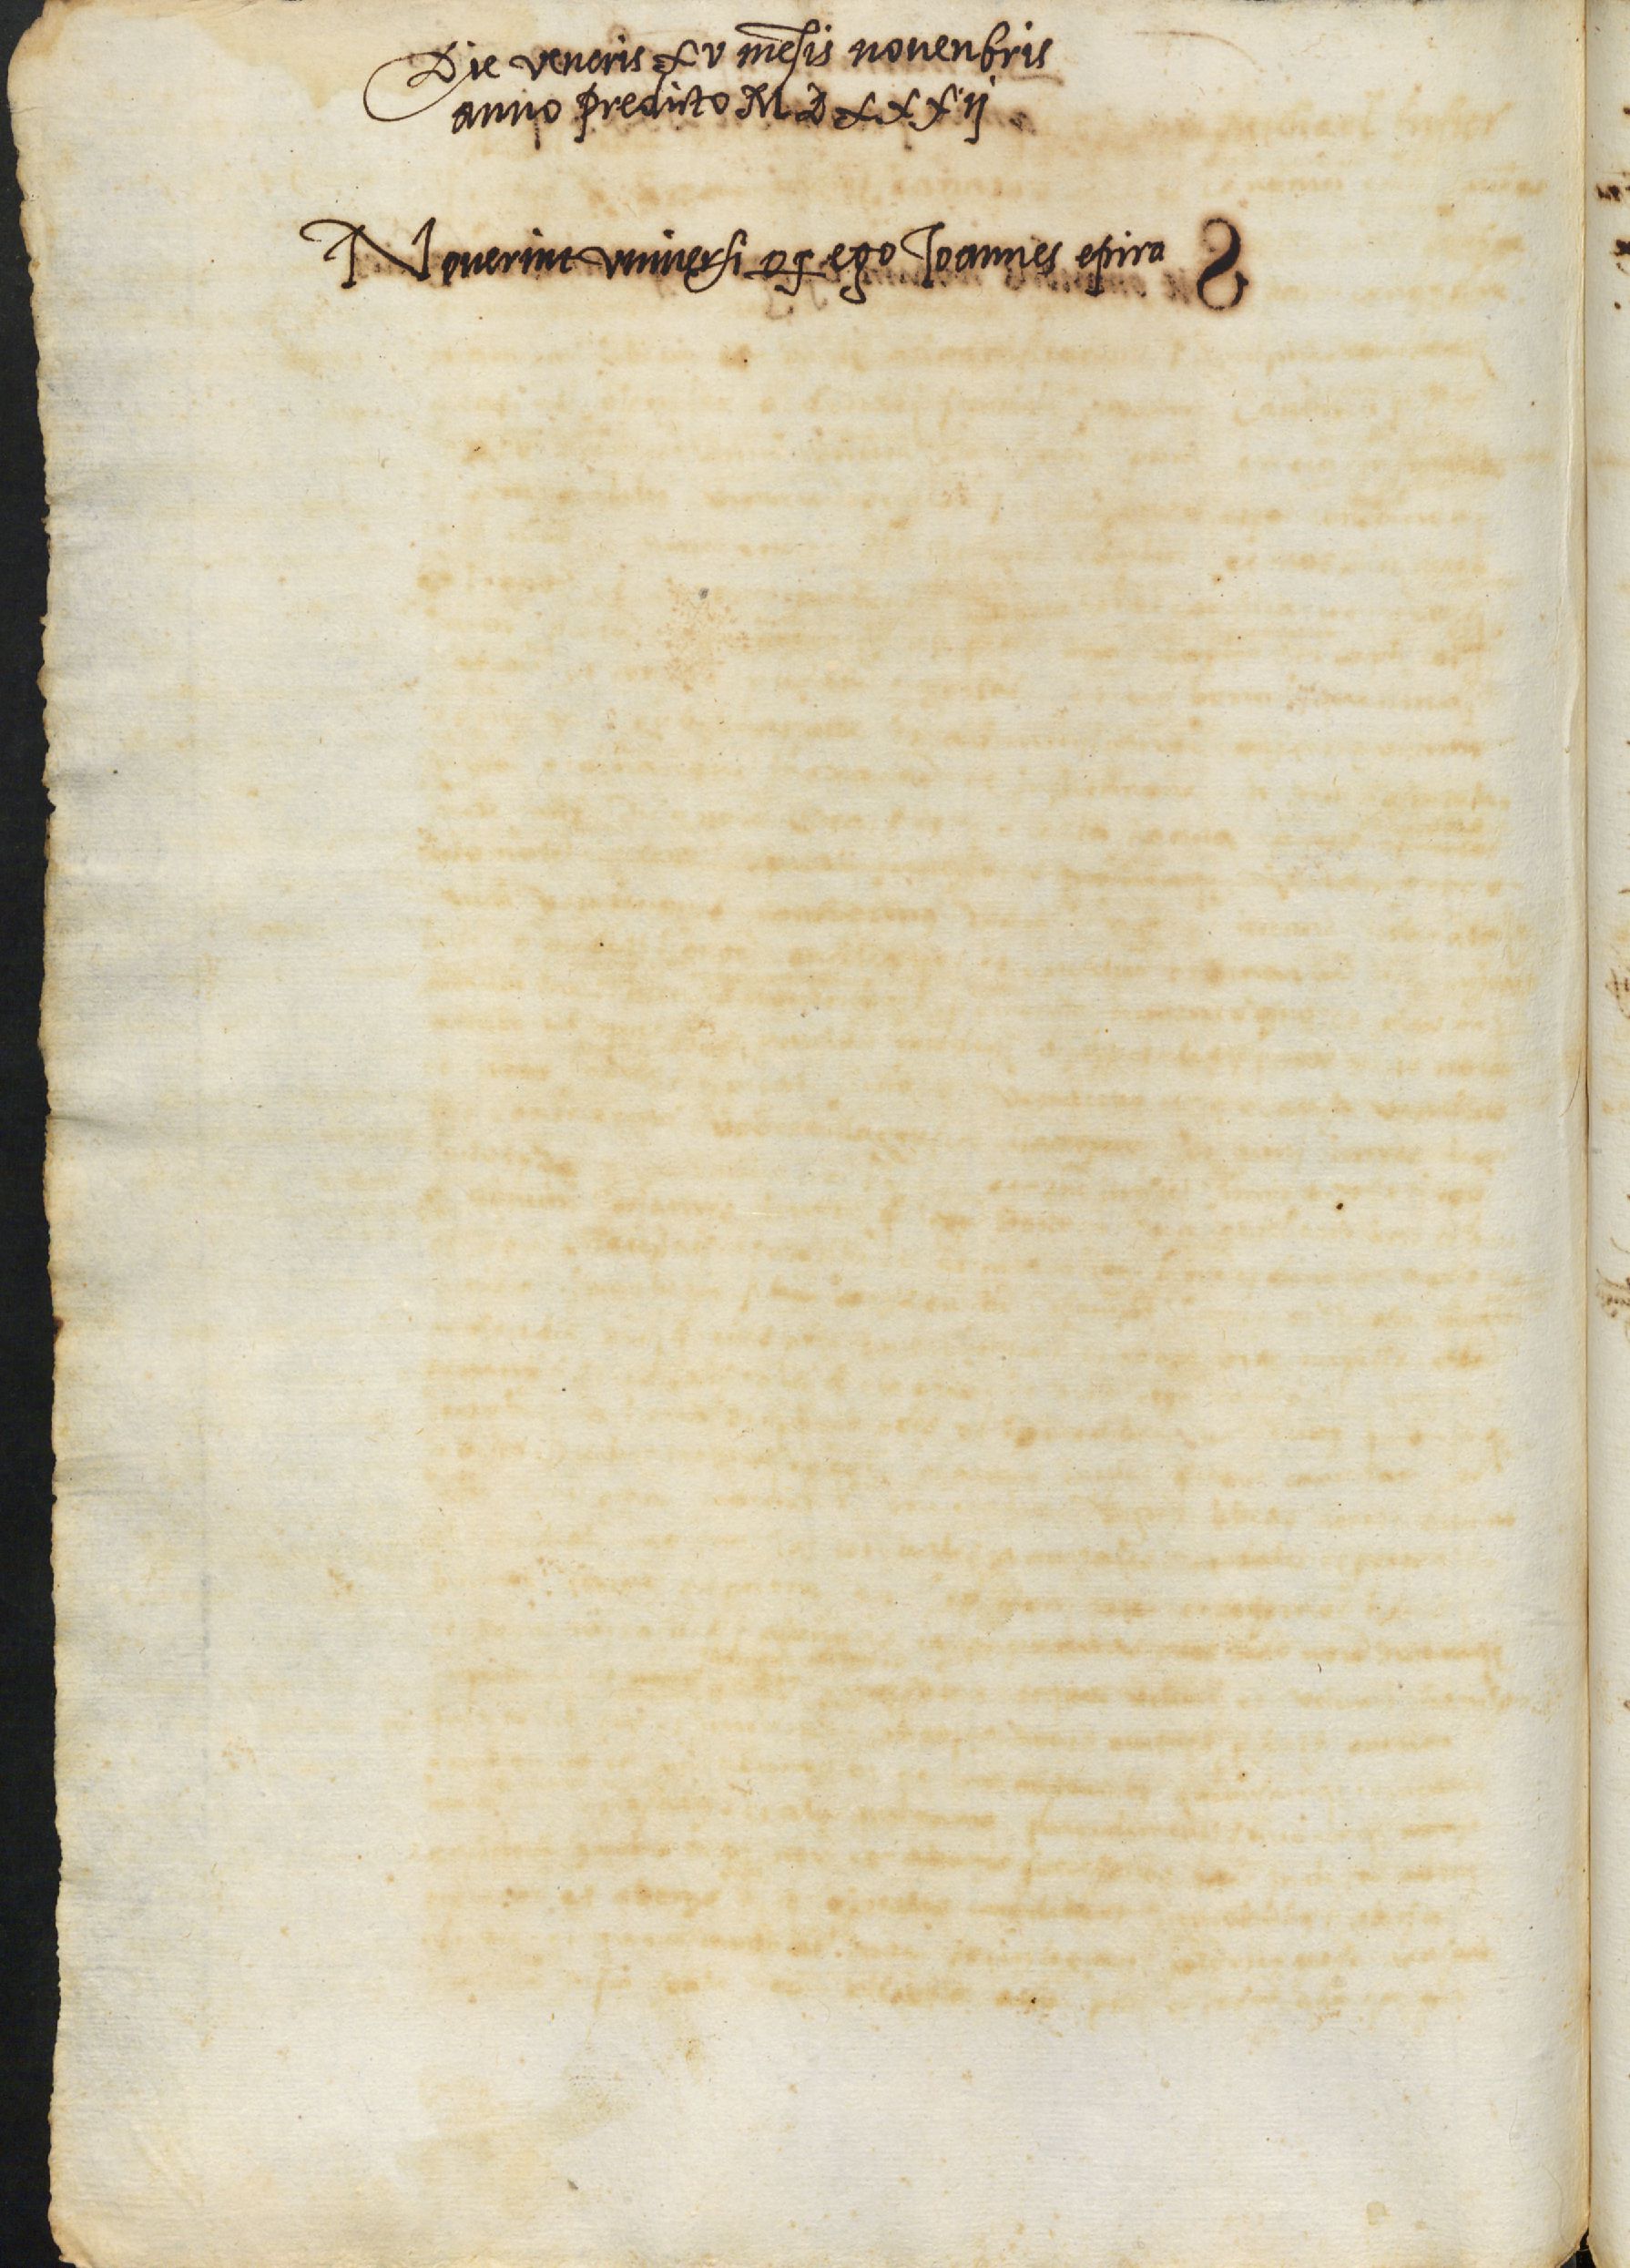 Die veneris xv mēsis nouenbris
anno predicto M D x x x ij
Nouerint vniuersi qƺ ego Joannes epira